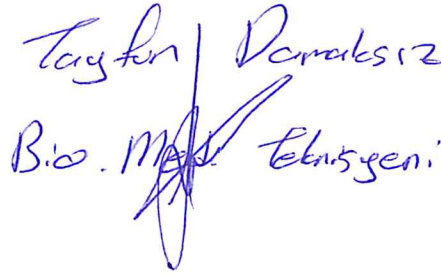 Tayfun Damaksız
Bio. Med. Teknisyeni